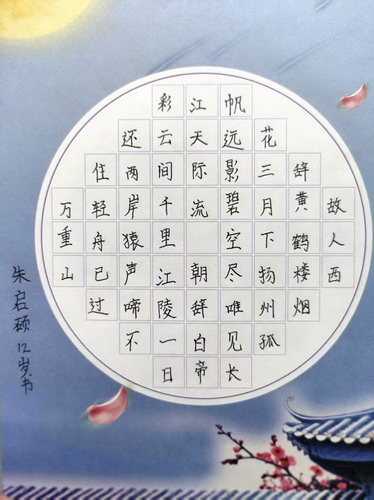 故人西
辞黄鹤楼烟
花三月下扬州孤
帆远影碧空尽唯见长
江天际流 朝辞白帝
彩云间千里江陵一日
还两岸猿声啼不
住轻舟已过
万重山
朱启硕12岁书